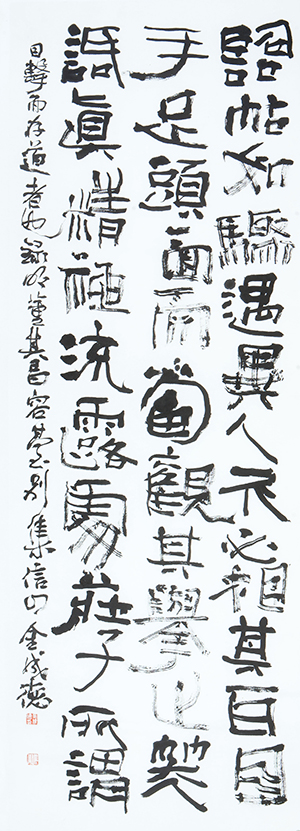 臨帖如驟遇異人不必相其耳目
手足頭面而當觀其擧止笑
語眞精神流露處莊子所謂
目擊而存道者也錄明董其昌容臺別集信山金成德